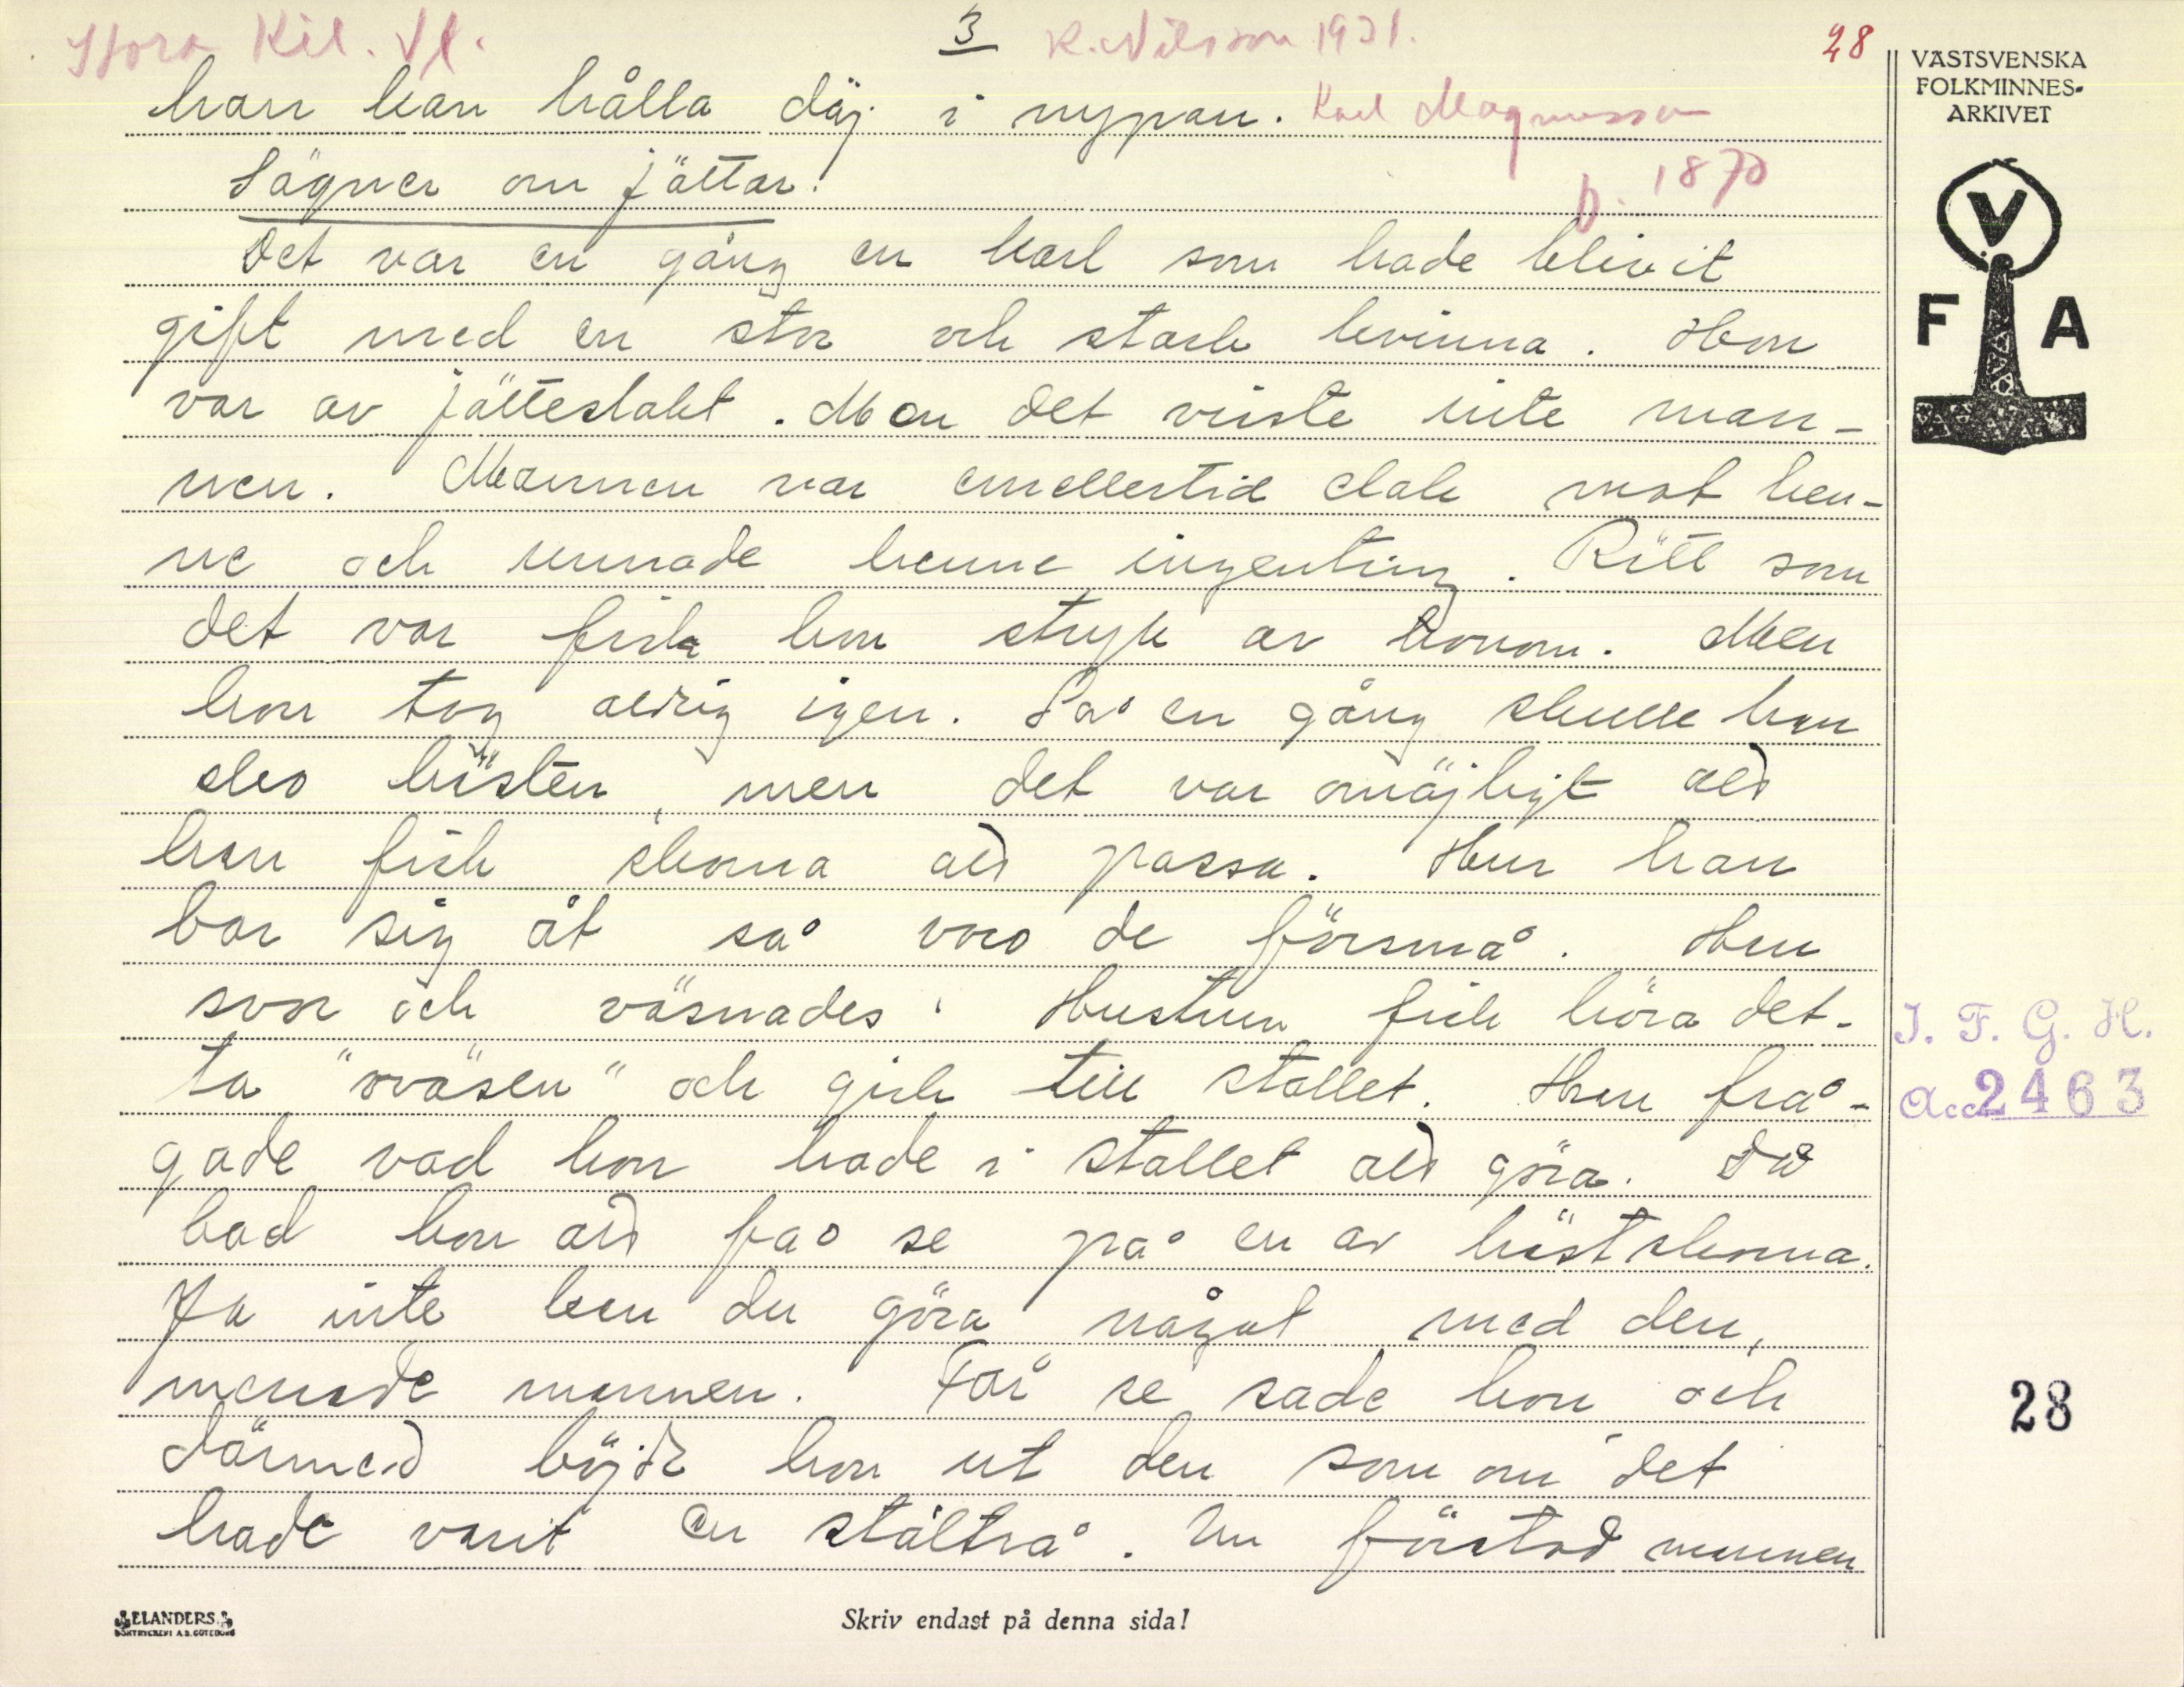 Stora Kil. Vl.
3
K. Nilsson 1931.
28
han kan hålla däj i nypan. Karl Magnusson
f. 1870
Sägner om jättar.
Det var en gång en karl som hade blivit
gift med en stor och stark kvinna. Hon
var av jättesläkt. Men det visste inte man-
nen. Mannen var emellertid elak mot hen-
ne och unnade henne ingenting. Rätt som
det var fick hon stryk av honom. Men
hon tog aldrig igen. Så en gång skulle han
sko hästen, men det var omöjligt att
han fick skorna att passa. Hur han
bar sig åt så voro de försmå. Han
svor och väsnades. Hustrun fick höra det-
ta "oväsen" och gick till stallet. Han frå-
gade vad hon hade i stallet att göra. Då
bad hon att få se på en av hästskorna.
Ja inte kan du göra något med den,
menade mannen. Får se sade hon och
därmed böjde hon ut den som om det
hade varit en ståltrå. Nu förstod mannen
VÄSTSVENSKA
FOLKMINNES-
ARKIVET
V
F A
I. F. G. H.
Acc 2463
28
ELANDERS
BOKTRYCKERI A.B. GÖTEBORG
Skriv endast på denna sida!